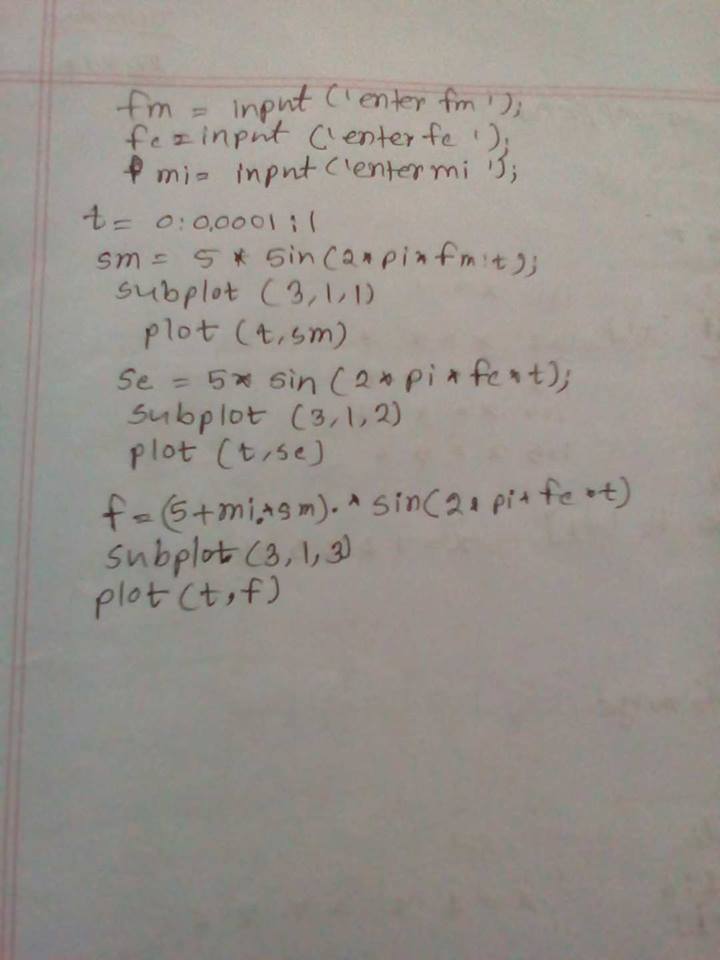 fm = input ('enter fm');
fc = input ('enter fc');
mi = input ('enter mi');
t = 0:0.0001:1
sm = 5 * sin(2*pi*fm*t);
subplot (3,1,1)
plot (t,sm)
Sc = 5* sin (2*pi*fc*t);
subplot (3,1,2)
plot (t,sc)
f = (5+mi.*sm).* sin(2*pi*fc*t)
subplot (3,1,3)
plot (t,f)